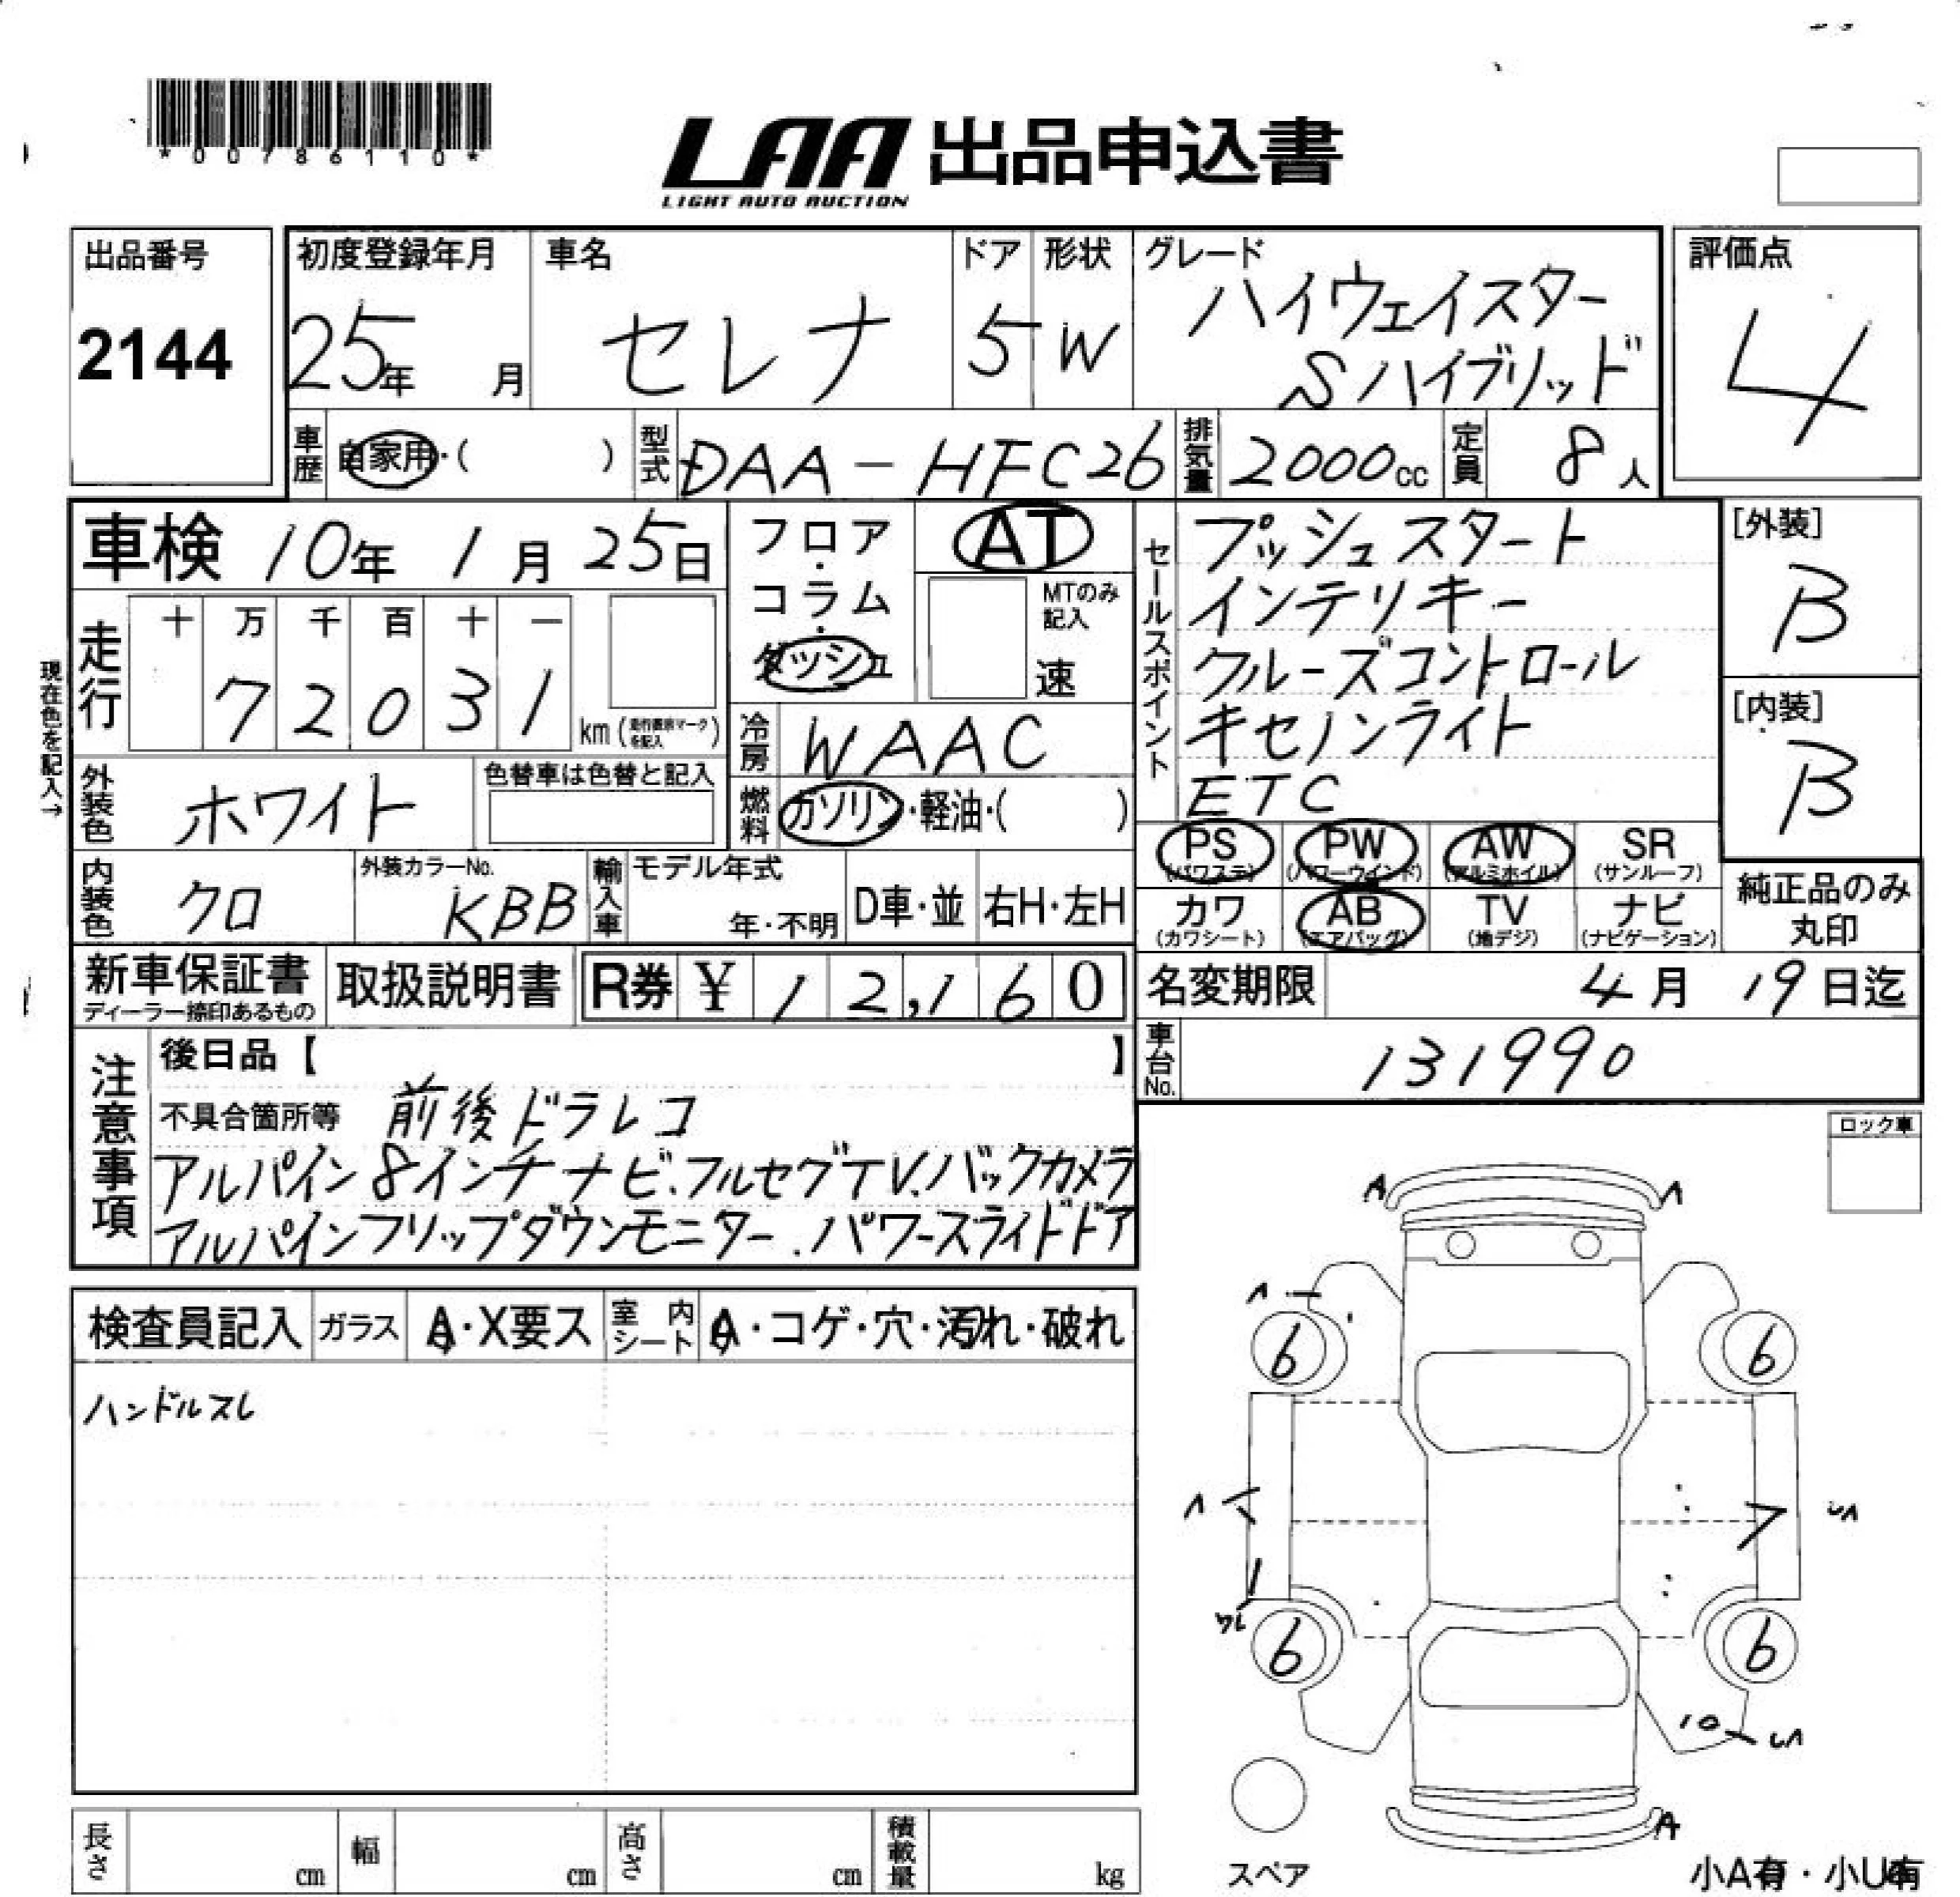 *00786110*
LAA 出品申込書
LIGHT AUTO AUCTION
出品番号
2144
初度登録年月
25年 月
車名
セレナ
ドア
5
形状
W
グレード
ハイウェイスター
Sハイブリッド
評価点
4
車歴 自家用・( )
型式 DAA-HFC26
排気量 2000cc
定員 8人
車検 10年 1月 25日
現在色を記入→
走行
十 万 千 百 十 一
7 2 0 3 1 km (走行表示マークを記入)
フロア・コラム・ダッシュ
AT
MTのみ記入
速
冷房 WAAC
燃料 ガソリン・軽油・( )
セールスポイント
プッシュスタート
インテリキー
クルーズコントロール
キセノンライト
ETC
[外装]
B
[内装]
B
外装色 ホワイト
色替車は色替と記入
内装色 クロ
外装カラーNo. KBB
輸入車
モデル年式
年・不明
D車・並
右H・左H
PS (パワステ)
PW (パワーウインド)
AW (アルミホイル)
SR (サンルーフ)
カワ (カワシート)
AB (エアバッグ)
TV (地デジ)
ナビ (ナビゲーション)
純正品のみ
丸印
新車保証書
ディーラー捺印あるもの
取扱説明書
R券 ¥12,160
名変期限 4月 19日迄
車台No. 131990
注意事項
後日品【 】
不具合箇所等 前後ドラレコ
アルパイン8インチナビ.フルセグTV.バックカメラ
アルパインフリップダウンモニター.パワースライドドア
ロック車
検査員記入
ガラス A・X要ス
室内シート A・コゲ・穴・汚れ・破れ
ハンドルスレ
A A
6 6
6 6
10
A
スペア
小A有・小U有
長さ cm
幅 cm
高さ cm
積載量 kg